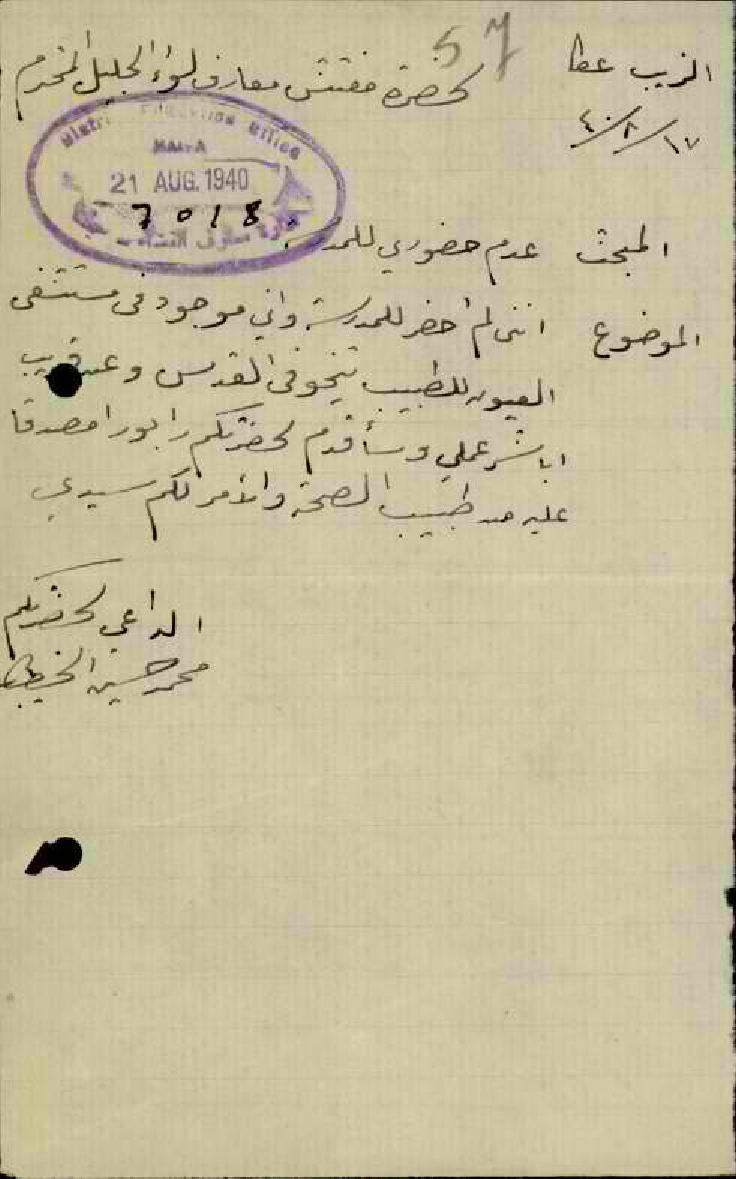 57
الزيب عكا
لحضرة مفتش معارف لواء الجليل المحترم
١٧/٨/٤٠
District Education Office
HAIFA
21 AUG. 1940
7018
المبحث عدم حضوري للمدرسة
الموضوع انني لم احضر للمدرسة واني موجود في مستشفى
العيون للطبيب تيخو في القدس وعن قريب
اباشر عملي وسأقدم لحضرتكم رابورا مصدقا
عليه من طبيب الصحة والأمر لكم سيدي
الداعي لحضرتكم
محمد حسين الخطيب